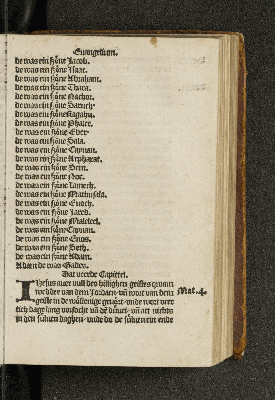 Euangelium.
de was ein szöne Jacob.
de was ein szöne Isaac.
de was ein szöne Abraham.
de was ein szöne Thara.
de was ein szöne Nachor.
de was ein szöne Saruch.
de was ein szöne Ragahu.
de was ein szöne Phalec.
de was ein szöne Eber.
de was ein szöne Sala.
de was ein szöne Caynan.
de was ein szöne Arphaxat.
de was ein szöne Sem.
de was ein szöne Noe.
de was ein szöne Lamech.
de was ein szöne Mathusala.
de was ein szöne Enoch.
de was ein szöne Jared.
de was ein szöne Malaleel.
de was ein szöne Caynan.
de was ein szöne Enos.
de was ein szöne Seth.
de was ein szöne Adam.
Adam de was Gades.
Dat veerde Capittel.
Ihesus auer vull des hilligen geistes quam
wedder van dem Jordan, vñ wort van dem Mat. 4.
geiste in de wöstenige geuört, vnde wort veer
tich dage lang vorsocht van dem düuel, vñ att nichts
in den suluen dagen, vnde do de suluen ein ende